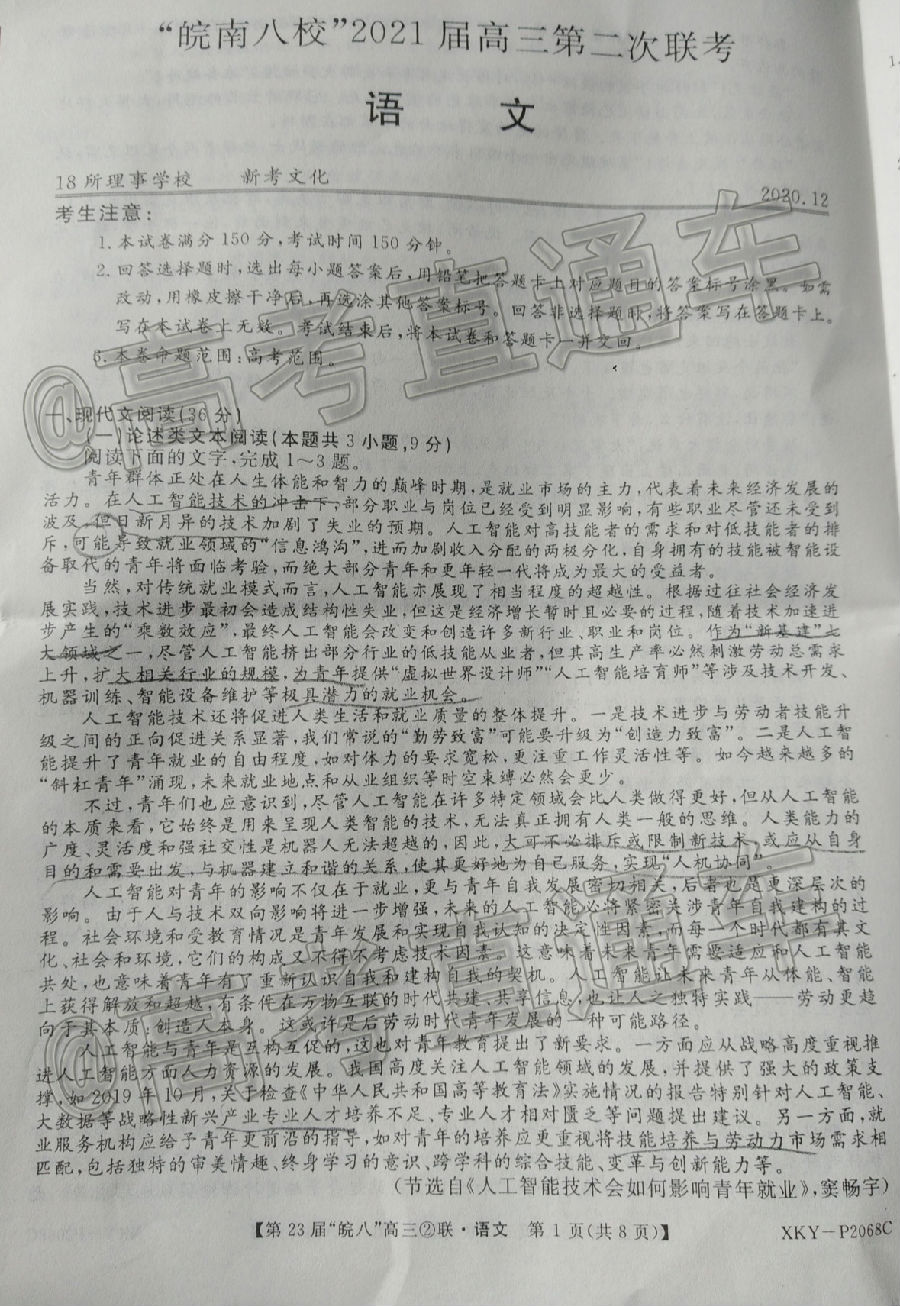 “皖南八校”2021届高三第二次联考
语 文
18所理事学校 新考文化
2020.12
考生注意:
1.本试卷满分150分,考试时间150分钟。
2.回答选择题时,选出每小题答案后,用铅笔把答题卡上对应题目的答案标号涂黑。如需
改动,用橡皮擦干净后,再选涂其他答案标号。回答非选择题时,将答案写在答题卡上。
写在本试卷上无效。考试结束后,将本试卷和答题卡一并交回。
本卷命题范围:高考范围。
一、现代文阅读(36分)
(一)论述类文本阅读(本题共3小题,9分)
阅读下面的文字,完成1~3题。
青年群体正处在人生体能和智力的巅峰时期,是就业市场的主力,代表着未来经济发展的
活力。在人工智能技术的冲击下,部分职业与岗位已经受到明显影响,有些职业尽管还未受到
波及,但日新月异的技术加剧了失业的预期。人工智能对高技能者的需求和对低技能者的排
斥,可能导致就业领域的“信息鸿沟”,进而加剧收入分配的两极分化,自身拥有的技能被智能设
备取代的青年将面临考验,而绝大部分青年和更年轻一代将成为最大的受益者。
当然,对传统就业模式而言,人工智能亦展现了相当程度的超越性。根据过往社会经济发
展实践,技术进步最初会造成结构性失业,但这是经济增长暂时且必要的过程,随着技术加速进
步产生的“乘数效应”,最终人工智能会改变和创造许多新行业、职业和岗位。作为“新基建”七
大领域之一,尽管人工智能挤出部分行业的低技能从业者,但其高生产率必然刺激劳动总需求
上升,扩大相关行业的规模,为青年提供“虚拟世界设计师”“人工智能培育师”等涉及技术开发、
机器训练、智能设备维护等极具潜力的就业机会。
人工智能技术还将促进人类生活和就业质量的整体提升。一是技术进步与劳动者技能升
级之间的正向促进关系显著,我们常说的“勤劳致富”可能要升级为“创造力致富”。二是人工智
能提升了青年就业的自由程度,如对体力的要求宽松,更注重工作灵活性等。如今越来越多的
“斜杠青年”涌现,未来就业地点和从业组织等时空束缚必然会更少。
不过,青年们也应意识到,尽管人工智能在许多特定领域会比人类做得更好,但从人工智能
的本质来看,它始终是用来呈现人类智能的技术,无法真正拥有人类一般的思维。人类能力的
广度、灵活度和强社交性是机器人无法超越的,因此,大可不必排斥或限制新技术,或应从自身
目的和需要出发,与机器建立和谐的关系,使其更好地为自己服务,实现“人机协同”。
人工智能对青年的影响不仅在于就业,更与青年自我发展密切相关,后者也是更深层次的
影响。由于人与技术双向影响将进一步增强,未来的人工智能必将紧密关涉青年自我建构的过
程。社会环境和受教育情况是青年发展和实现自我认知的决定性因素,而每一个时代都有其文
化、社会和环境,它们的构成又不得不考虑技术因素。这意味着未来青年需要适应和人工智能
共处,也意味着青年有了重新认识自我和建构自我的契机。人工智能让未来青年从体能、智能
上获得解放和超越,有条件在万物互联的时代共建、共享信息,也让人之独特实践——劳动更趋
向于其本质:创造人本身。这或许是后劳动时代青年发展的一种可能路径。
人工智能与青年是互构互促的,这也对青年教育提出了新要求。一方面应从战略高度重视推
进人工智能方面人力资源的发展。我国高度关注人工智能领域的发展,并提供了强大的政策支
撑,如2019年10月,关于检查《中华人民共和国高等教育法》实施情况的报告特别针对人工智能、
大数据等战略性新兴产业专业人才培养不足、专业人才相对匮乏等问题提出建议。另一方面,就
业服务机构应给予青年更前沿的指导,如对青年的培养应更重视将技能培养与劳动力市场需求相
匹配,包括独特的审美情趣、终身学习的意识、跨学科的综合技能、变革与创新能力等。
(节选自《人工智能技术会如何影响青年就业》,窦畅宇)
【第23届“皖八”高三②联·语文 第1页(共8页)】 XKY-P2068C
@高考直通车
@高考直通车